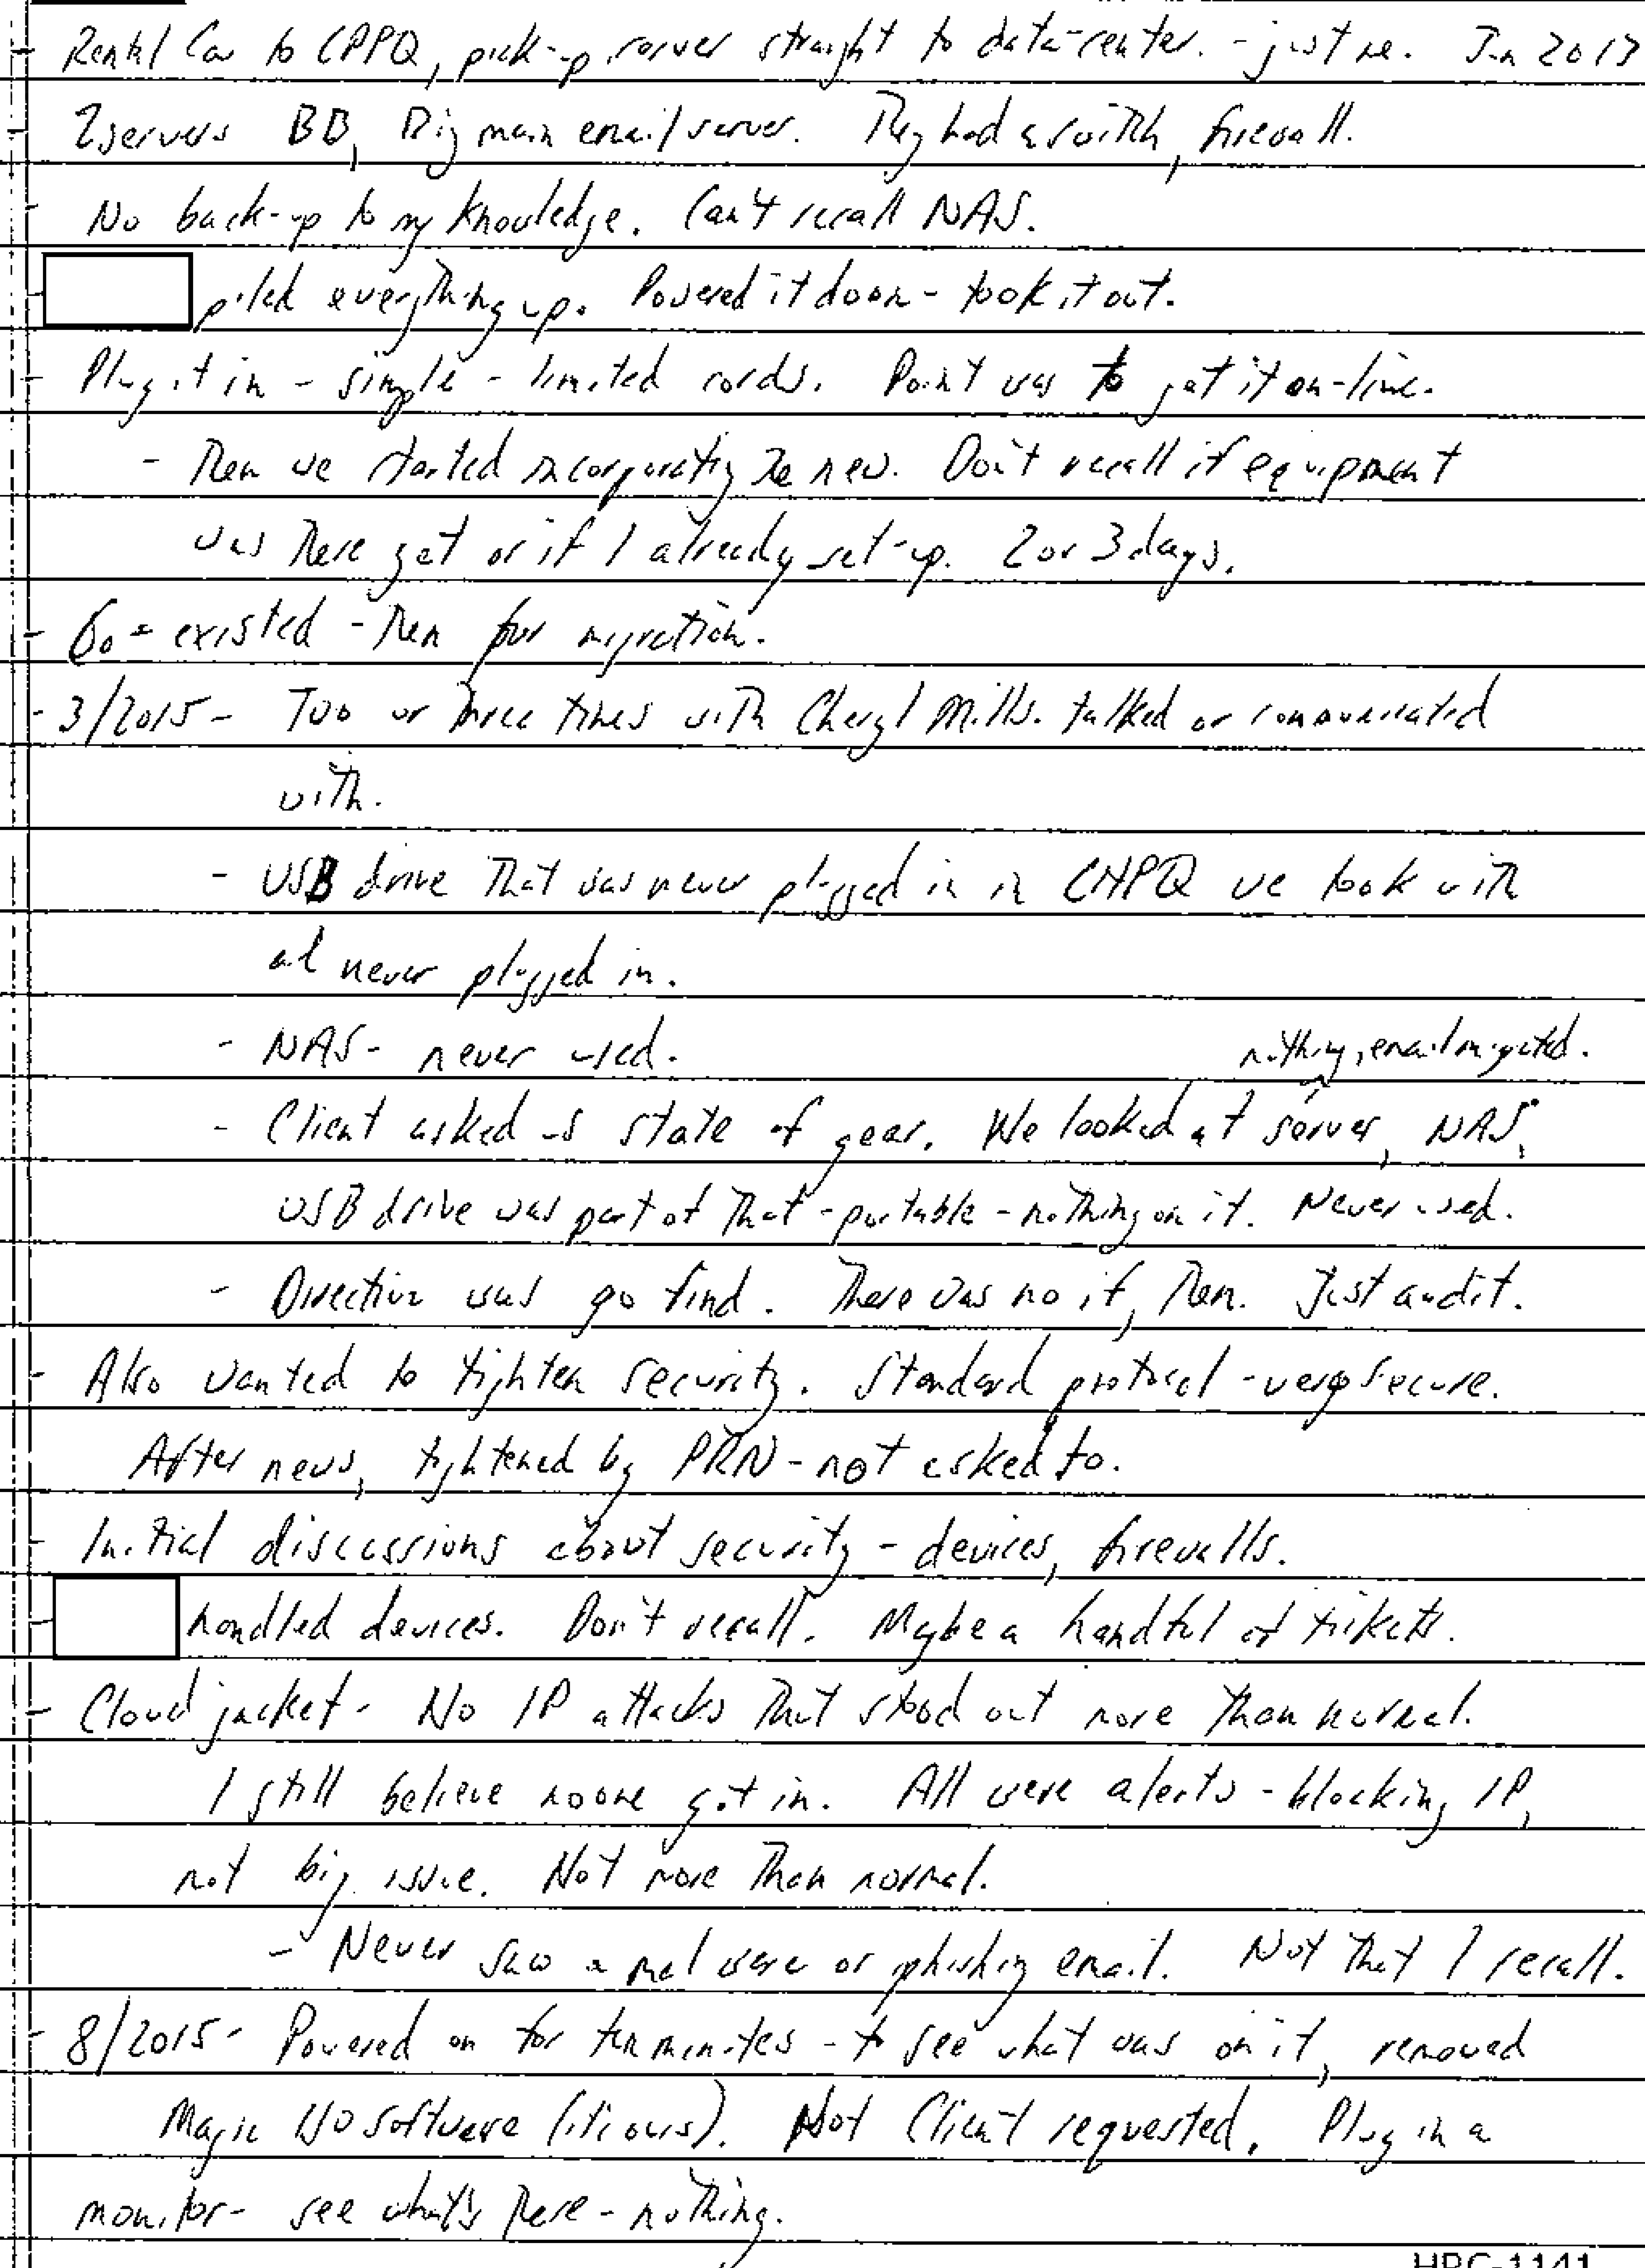 - Rental Car to CPPQ, pick-up server straight to data-center. - just me. Jun 2013
- 2 servers BB, Big main email server. They had a switch, firewall.
- No back-up to my knowledge. Can't recall NAS.
- piled everything up. Powered it down - took it out.
- Plug it in - simple - limited cords. Point was to get it on-line.
- Then we started incorporating the new. Don't recall if equipment
was there yet or if I already set-up. 2 or 3 days.
- existed - then for migration.
- 3/2015 - Two or three times with Cheryl Mills. talked or communicated
with.
- USB drive that was never plugged in in CHPQ we took with
and never plugged in.
- NAS - never used.
nothing, email migrated.
- Client asked us state of gear. We looked at server, NAS,
USB drive was part of that - portable - nothing on it. Never used.
- Directive was go find. There was no if, then. Just audit.
- Also wanted to tighten security. Standard protocol - very secure.
After news, tightened by PRN - not asked to.
- Initial discussions about security - devices, firewalls.
- handled devices. Don't recall. Maybe a handful of tickets.
- Cloud jacket - No IP attacks that stood out more than normal.
I still believe no one got in. All were alerts - blocking IP,
not big issue. Not more than normal.
- Never saw a malware or phishing email. Not that I recall.
- 8/2015 - Powered on for ten minutes - to see what was on it, removed
Magic software (it is ours). Not Client requested. Plug in a
monitor - see what's there - nothing.
HRC-1141